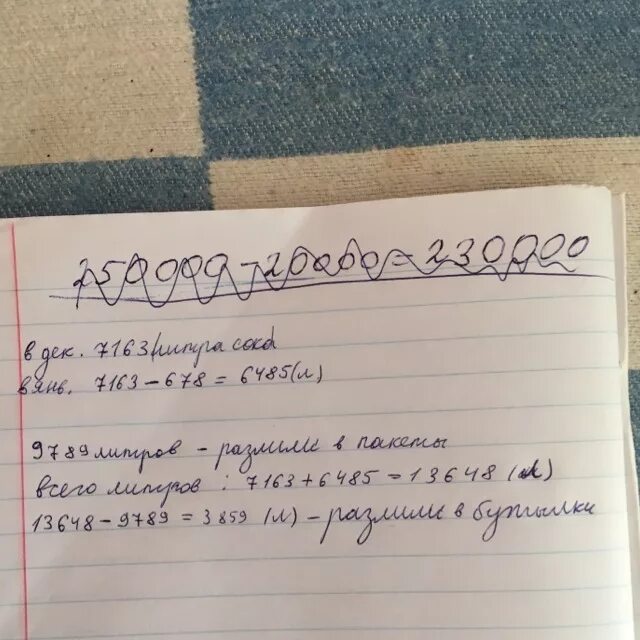 250000-20000=230000
в дек. 7163 литра сока
в янв. 7163-678=6485(л)
9789 литров - разлили в пакеты
всего литров : 7163+6485=13648 (л)
13648-9789=3859 (л) - разлили в бутылки